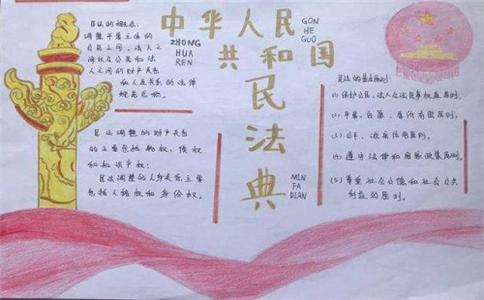 中华人民
共和国
民法典
ZHONG
HUA
REN
GON
HE
GUO
MIN
FA
DIAN
民法的概念:
调整平等主体的
自然人之间、法人之
间以及公民和法
人之间的财产关系
和人身关系的法律
规范总称。
民法调整的财产关系
的主要包括物权、债权
和知识产权;
民法调整的人身关系主要
包括人格权和身份权。
民法的基本原则:
(1) 保护公民、法人合法民事权益原则。
(2) 平等、自愿、
(3) 公平、诚实信用原则。
(4) 遵守法律和国家政策原则。
(5) 尊重社会公德和社会公共
利益的原则。